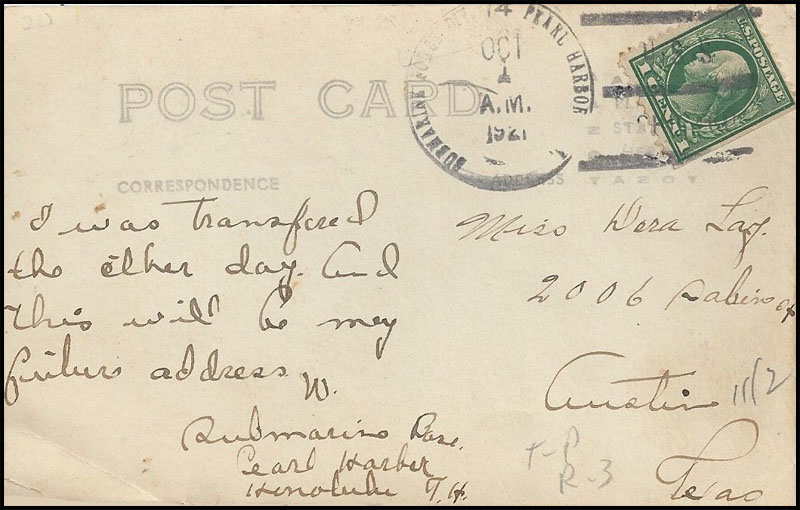 20
POST CARD
CORRESPONDENCE
ADDRESS
SUBMARINE PEARL HARBOR
14
OCT
1
A.M.
1921
U.S. POSTAGE
1 CENT 1
AZO
I was transfered
the other day. And
this will be my
future address
W.
Submarine Base.
Pearl Harber
Honolulu T.H.
Miss Dera Lay.
2006 Sabine
Austin
Texas
11/2
T-P
R-3